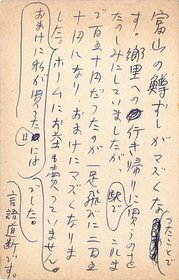 富山の鱒ずしがマズくなつたことで
す。郷里への行き帰りに買うのを
たのしみにしていましたが、駅でこれま
で百五十円だつたのが一足飛びに二百五
十円になり、おまけにマズくなりま
した。ホームにお茶も売つていません。
おまけに私が買うた日には
でした。
言語道断です。